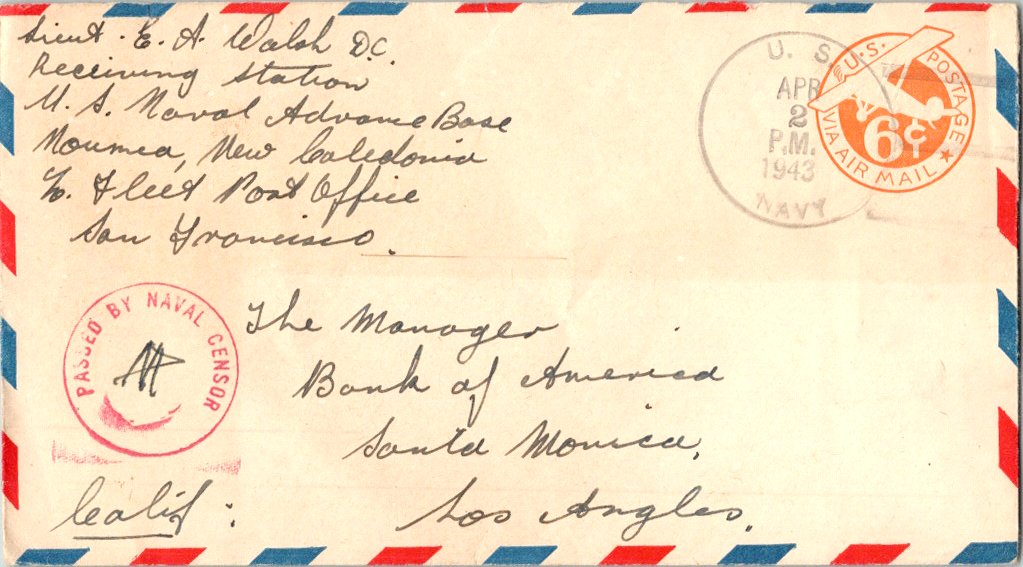 Lieut. E. A. Walsh D.C.
Receiving Station
U. S. Naval Advance Base
Noumea, New Caledonia
℅ Fleet Post Office
San Francisco.
U. S.
APR
2
P.M.
1943
NAVY
U.S. POSTAGE
6¢
VIA AIR MAIL
PASSED BY NAVAL CENSOR
The Manager
Bank of America
Santa Monica,
Los Angles.
Calif: